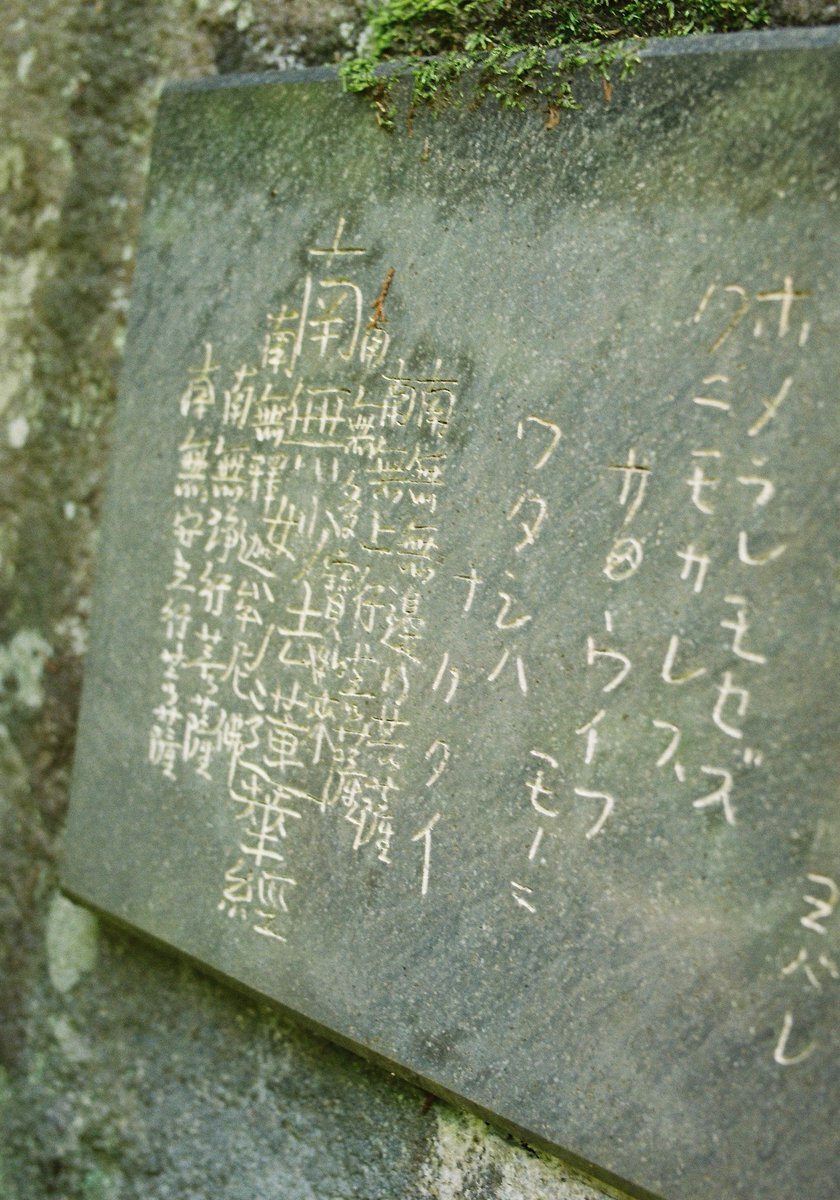 ヨバレ
ホメラレモセズ
クニモサレズ
サウイフ
モノニ
ワタシハ
ナリタイ
南無無邊行菩薩
南無上行菩薩
南無多寶如來
南無妙法蓮華經
南無釋迦牟尼佛
南無淨行菩薩
南無安立行菩薩